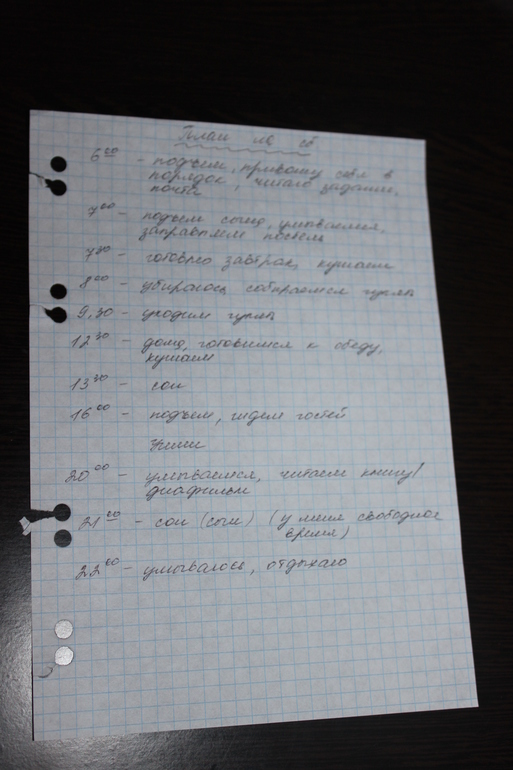 План на сб
6 00 - подъем, привожу себя в
порядок, читаю задание,
почта
7 00 - подъем сына, умываемся,
заправляем постель
7 30 - готовлю завтрак, кушаем
8 00 - убираюсь, собираемся гулять
9,30 - уходим гулять
12 30 - дома, готовимся к обеду,
кушаем
13 30 - сон
16 00 - подъем, ждем гостей
Ужин
20 00 - умываемся, читаем книгу/
диафильм
21 00 - сон (сын) (у меня свободное
время)
22 00 - умываюсь, отдыхаю